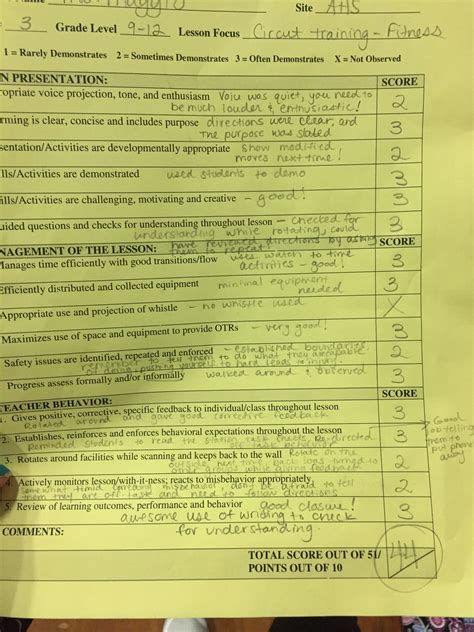 Site AHS
3 Grade Level 9-12 Lesson Focus Circuit training - Fitness
1 = Rarely Demonstrates 2 = Sometimes Demonstrates 3 = Often Demonstrates X = Not Observed
N PRESENTATION: SCORE
ropriate voice projection, tone, and enthusiasm Voiu was quiet, you need to
be much louder & enthusiastic! 2
rming is clear, concise and includes purpose directions were clear, and
the purpose was stated 3
sentation/Activities are developmentally appropriate Show modified
moves next time! 2
ills/Activities are demonstrated used students to demo 3
ills/Activities are challenging, motivating and creative - good! 3
uided questions and checks for understanding throughout lesson - Checked for
understanding while rotating, could 3
have reviewed directions by asking
NAGEMENT OF THE LESSON: them to repeat! SCORE
Manages time efficiently with good transitions/flow uses watch to time
activities - good! 3
Efficiently distributed and collected equipment minimal equipment
needed 3
Appropriate use and projection of whistle - no whistle used X
Maximizes use of space and equipment to provide OTRs - very good! 3
Safety issues are identified, repeated and enforced - established boundaries.
remember to tell them to do what they are capable
of doing, pushing yourself to hard leads to injury 2
Progress assess formally and/or informally walked around & observed 3
TEACHER BEHAVIOR: SCORE
1. Gives positive, corrective, specific feedback to individual/class throughout lesson
Rotated around and gave good corrective feedback 3
2. Establishes, reinforces and enforces behavioral expectations throughout the lesson
Reminded students to read the station task cards, Re-directed
task behavior 3
Good
on telling
them to
put phones
away
3. Rotates around facilities while scanning and keeps back to the wall Rotate on the
outside next time, back was turned to
other groups while giving feedback 2
4. Actively monitors lesson/with-it-ness; reacts to misbehavior appropriately
Somewhat timid correcting misbehavior, don't be afraid to tell
them they are off task and need to follow directions 2
5. Review of learning outcomes, performance and behavior good closure!
awesome use of writing to check 3
COMMENTS: for understanding.
TOTAL SCORE OUT OF 51/ 44
POINTS OUT OF 10